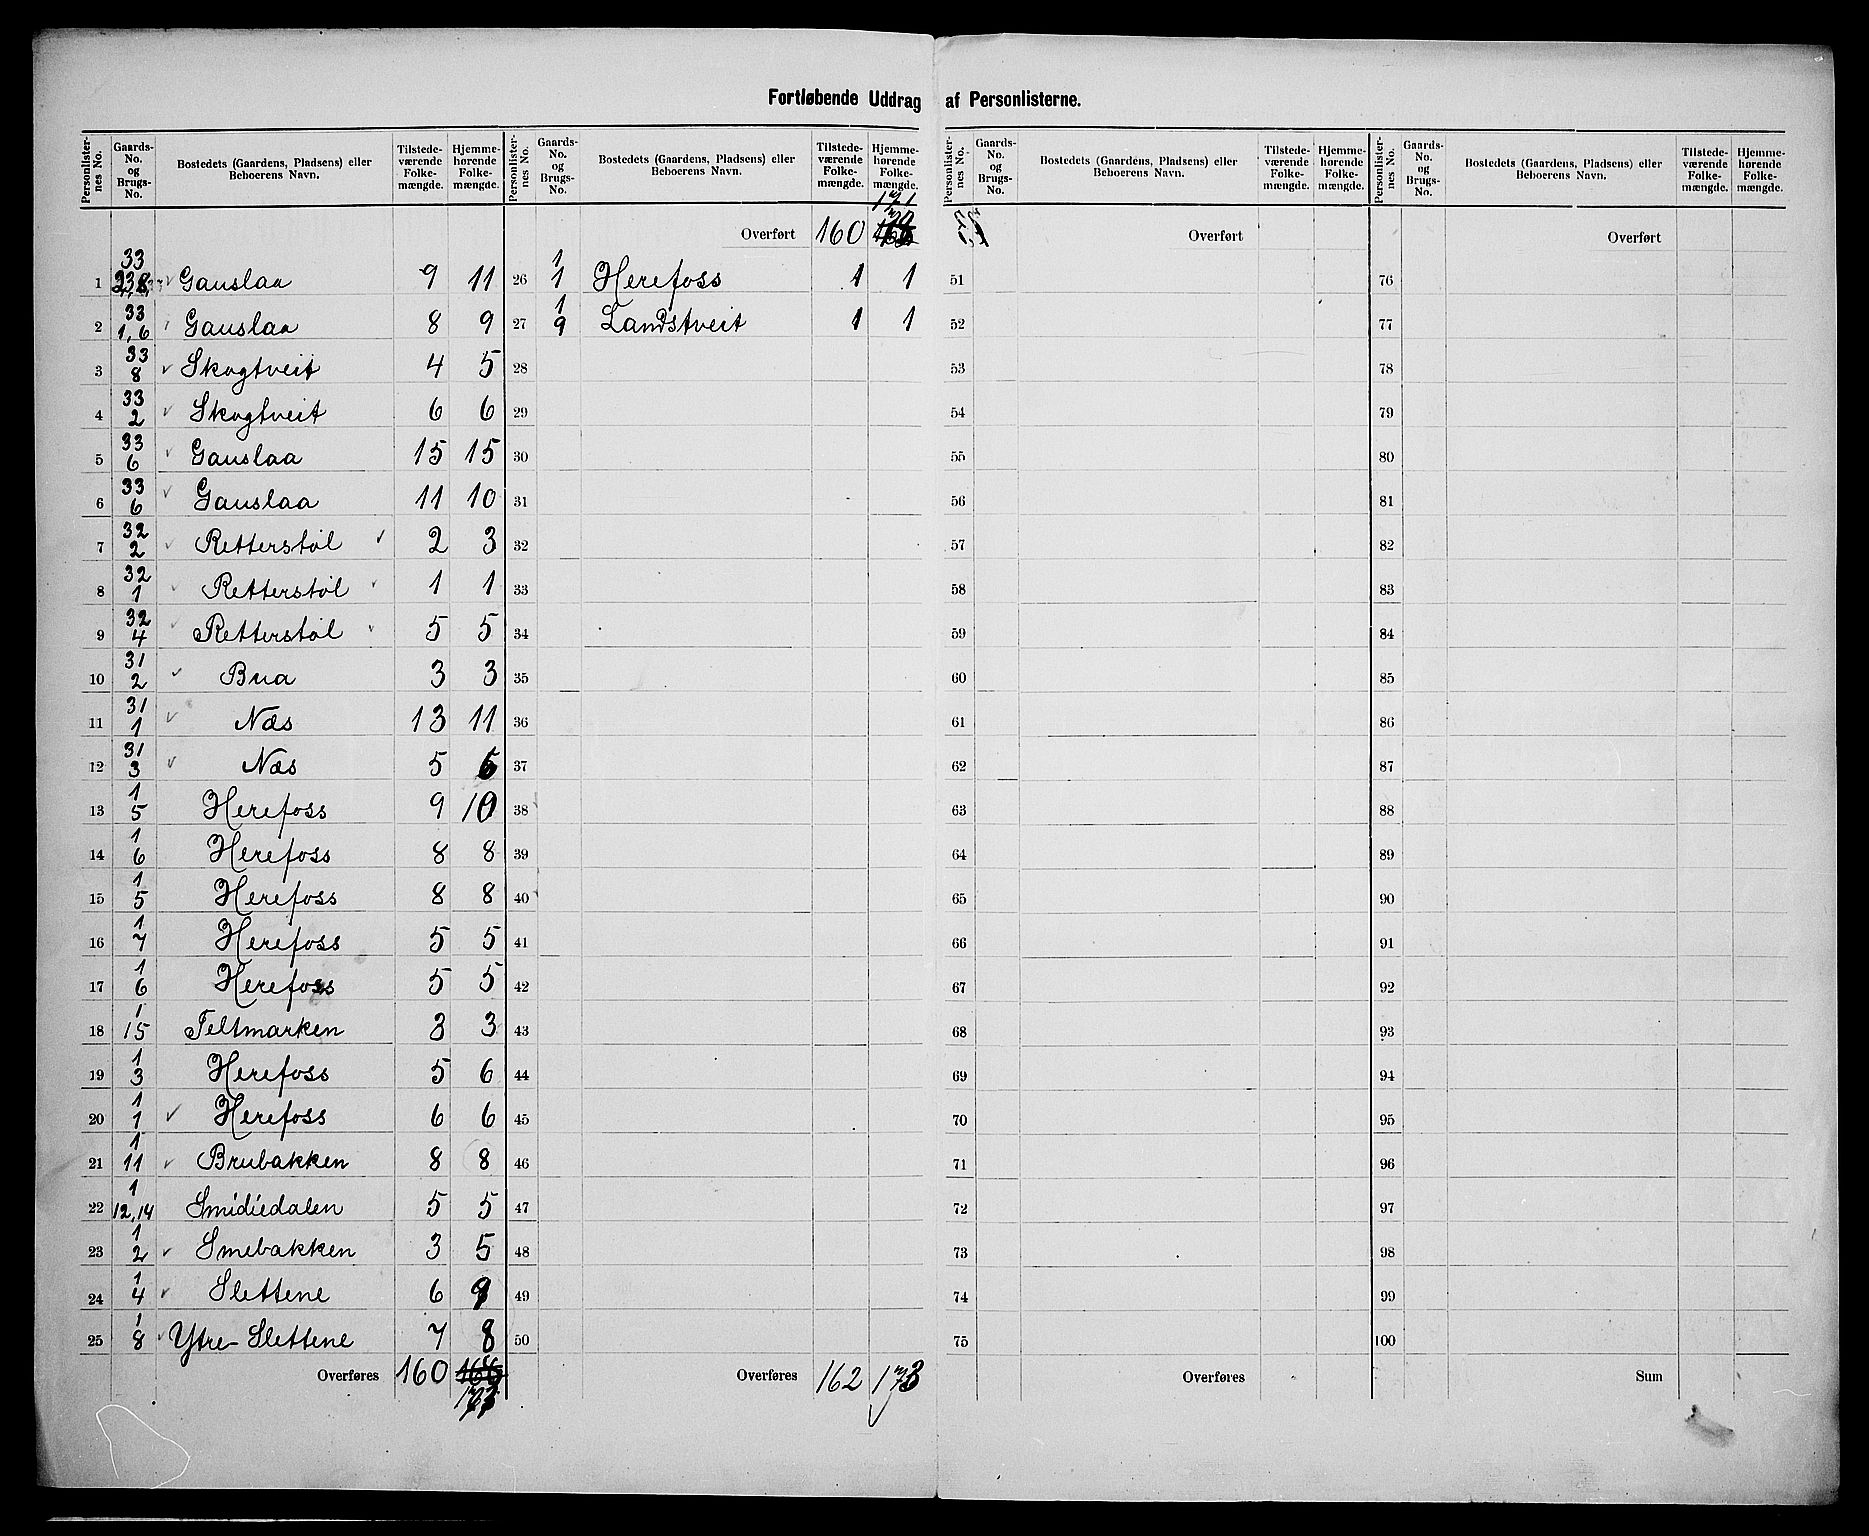 Fortløbende Uddrag af Personlisterne.
Personlister-nes No. | Gaards-No. og Brugs-No. | Bostedets (Gaardens, Pladsens) eller Beboerens Navn. | Tilstede-værende Folke-mængde. | Hjemme-hørende Folke-mængde.
1 | 33 | Gauslaa | 9 | 11
2 | 33 1, 6 | Gauslaa | 8 | 9
3 | 33 8 | Skogtveit | 4 | 5
4 | 33 2 | Skogtveit | 6 | 6
5 | 33 6 | Gauslaa | 15 | 15
6 | 33 6 | Gauslaa | 11 | 10
7 | 32 2 | Retterstøl | 2 | 3
8 | 32 1 | Retterstøl | 1 | 1
9 | 32 4 | Retterstøl | 5 | 5
10 | 31 2 | Bua | 3 | 3
11 | 31 1 | Næs | 13 | 11
12 | 31 3 | Næs | 5 | 6
13 | 1 5 | Herefoss | 9 | 10
14 | 1 6 | Herefoss | 8 | 8
15 | 1 5 | Herefoss | 8 | 8
16 | 1 7 | Herefoss | 5 | 5
17 | 1 6 | Herefoss | 5 | 5
18 | 1 15 | Feltmarken | 3 | 3
19 | 1 3 | Herefoss | 5 | 6
20 | 1 1 | Herefoss | 6 | 6
21 | 1 11 | Brubakken | 8 | 8
22 | 1 12, 14 | Smidiedalen | 5 | 5
23 | 1 2 | Smebakken | 3 | 5
24 | 1 4 | Slettene | 6 | 9
25 | 1 8 | Ytre-Slettene | 7 | 8
Overføres | 160
Personlister-nes No. | Gaards-No. og Brugs-No. | Bostedets (Gaardens, Pladsens) eller Beboerens Navn. | Tilstede-værende Folke-mængde. | Hjemme-hørende Folke-mængde.
171
Overført | 160
26 | 1 1 | Herefoss | 1 | 1
27 | 1 9 | Landstveit | 1 | 1
28
29
30
31
32
33
34
35
36
37
38
39
40
41
42
43
44
45
46
47
48
49
50
Overføres | 162 | 173
Personlister-nes No. | Gaards-No. og Brugs-No. | Bostedets (Gaardens, Pladsens) eller Beboerens Navn. | Tilstede-værende Folke-mængde. | Hjemme-hørende Folke-mængde.
Overført
51
52
53
54
55
56
57
58
59
60
61
62
63
64
65
66
67
68
69
70
71
72
73
74
75
Overføres
Personlister-nes No. | Gaards-No. og Brugs-No. | Bostedets (Gaardens, Pladsens) eller Beboerens Navn. | Tilstede-værende Folke-mængde. | Hjemme-hørende Folke-mængde.
Overført
76
77
78
79
80
81
82
83
84
85
86
87
88
89
90
91
92
93
94
95
96
97
98
99
100
Sum